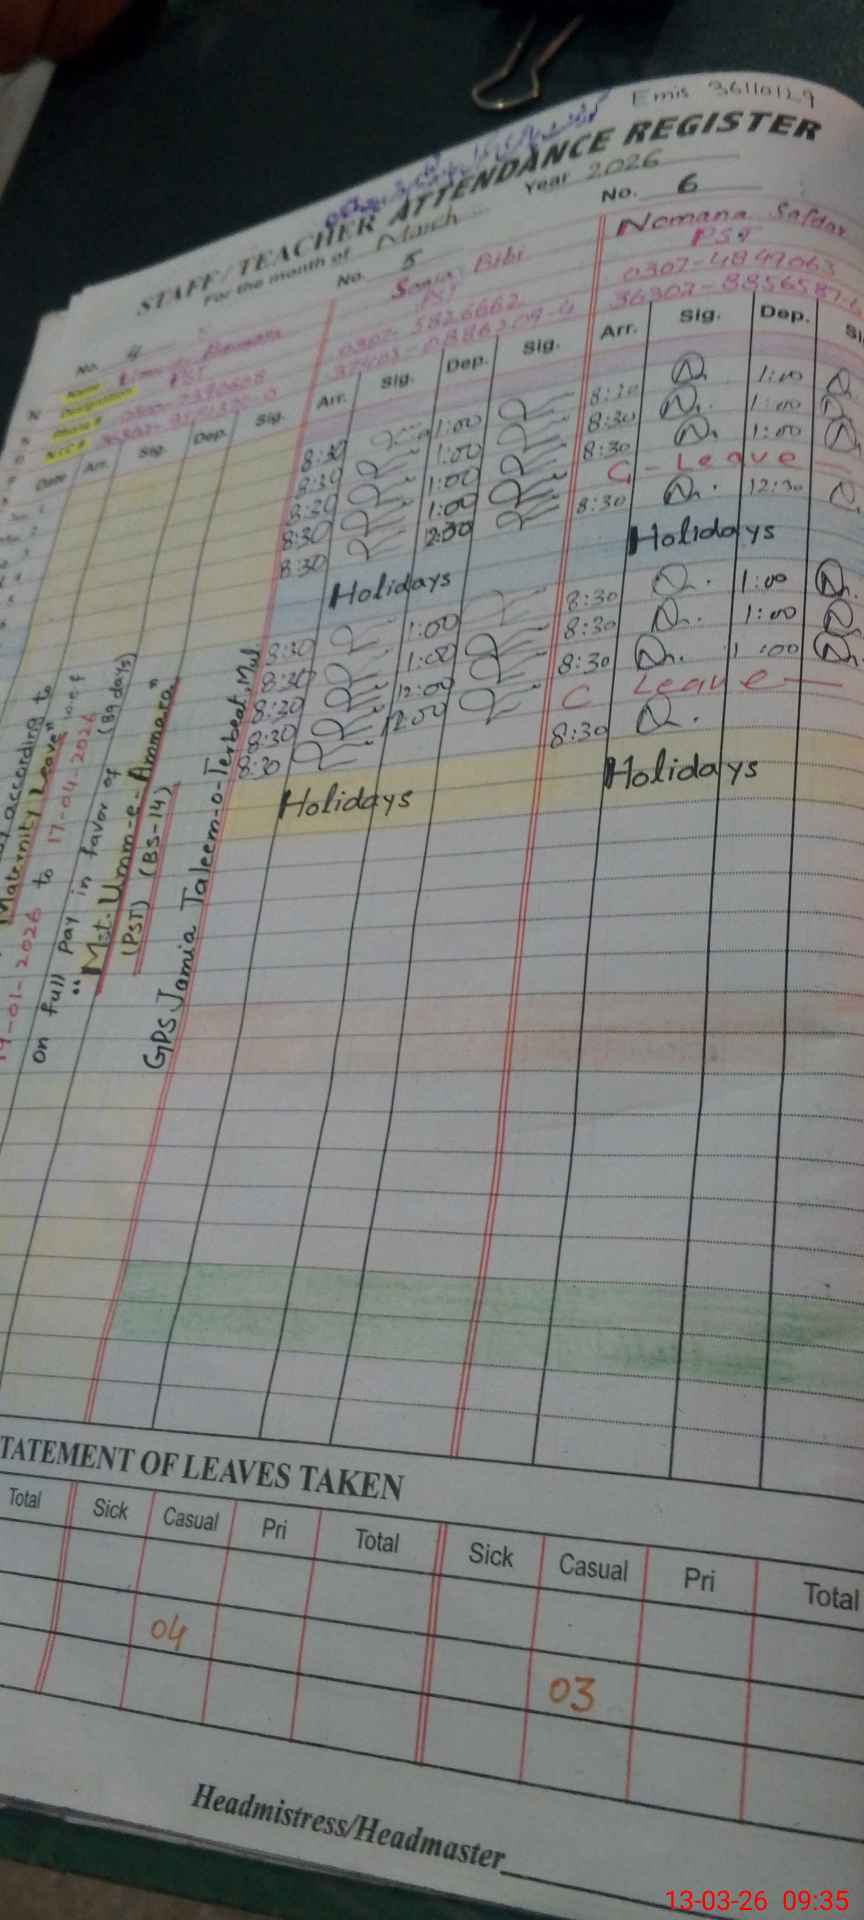 Emis 36110129
STAFF/TEACHER ATTENDANCE REGISTER
For the month of March Year 2026
No. 4
No. 5
No. 6
Name
Designation PST
Phone #
N.I.C #
Sonia Bibi
PST
0307-5826662
Nomana Safdar
PST
0307-4847063
Date Arr. Sig. Dep. Sig.
Arr. Sig. Dep. Sig.
Arr. Sig. Dep.
8:30 1:00
8:30 1:00
8:30 1:00
8:30 1:00
8:30
1:00
8:30 1:00
8:30 1:00
C-Leave
8:30 12:30
Holidays
Holidays
8:30 1:00
8:30 1:00
8:30 12:00
8:30 12:00
8:30
8:30 1:00
8:30 1:00
8:30 1:00
C Leave
8:30
Holidays
Holidays
according to
Maternity Leave" w.e.f
19-01-2026 to 17-04-2026
on full pay in favor of (89 days)
"Mst. Umm-e-Ammara"
(PST) (BS-14)
GPS Jamia Taleem-o-Terbeat, Mul
STATEMENT OF LEAVES TAKEN
Total Sick Casual Pri Total Sick Casual Pri Total
04
03
Headmistress/Headmaster
13-03-26 09:35